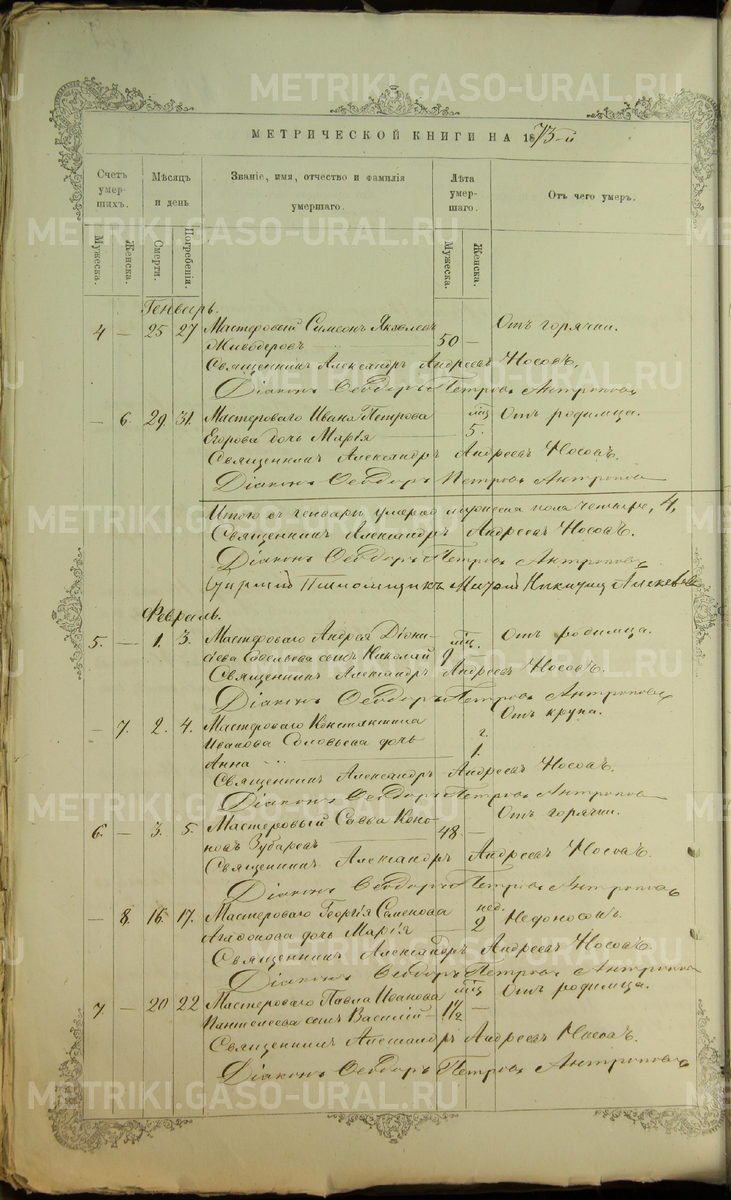 METRIKI.GASO-URAL.RU
МЕТРИЧЕСКОЙ КНИГИ НА 1873-й
Счетъ умер-шихъ.
Мѣсяцъ и день
Званіе, имя, отчество и фамилія умершаго.
Лѣта умер-шаго.
Отъ чего умеръ.
Мужеска.
Женска.
Смерти.
Погребенія.
Мужеска.
Женска.
Генварь.
4 — 25 27 Мастеровый Симеонъ Яковлевъ 50 — Отъ горячки.
Священникъ Александръ Андреевъ Носовъ.
Діаконъ Ѳеодоръ Петровъ Антроповъ
— 6. 29. 31. Мастероваго Ивана Петрова мц. Отъ родимца.
Егорова дочь Марія — 5.
Священникъ Александръ Андреевъ Носовъ.
Діаконъ Ѳеодоръ Петровъ Антроповъ
Итого въ генварѣ умерло мужеска пола четыре, 4,
Священникъ Александръ Андреевъ Носовъ.
Діаконъ Ѳеодоръ Петровъ Антроповъ
Февраль.
5. — 1. 3. Мастероваго Андрея Діони- мц. Отъ родимца.
сіева сынъ Николай 9
Священникъ Александръ Андреевъ Носовъ.
Діаконъ Ѳеодоръ Петровъ Антроповъ
— 7. 2. 4. Мастероваго Константина Отъ крупа.
Иванова Соловьева дочь г.
Анна — 1.
Священникъ Александръ Андреевъ Носовъ.
Діаконъ Ѳеодоръ Петровъ Антроповъ
6. — 3. 5. Мастеровый Савва Коно- 48. — Отъ горячки.
новъ Зубаревъ
Священникъ Александръ Андреевъ Носовъ.
Діаконъ Ѳеодоръ Петровъ Антроповъ
— 8. 16. 17. Мастероваго Георгія Семенова нед. Недоносокъ.
Агафонова дочь Марія — 2
Священникъ Александръ Андреевъ Носовъ.
Діаконъ Ѳеодоръ Петровъ Антроповъ
7 — 20 22 Мастероваго Павла Иванова мц. Отъ родимца.
Пантелеева сынъ Василій — 1½ —
Священникъ Александръ Андреевъ Носовъ.
Діаконъ Ѳеодоръ Петровъ Антроповъ